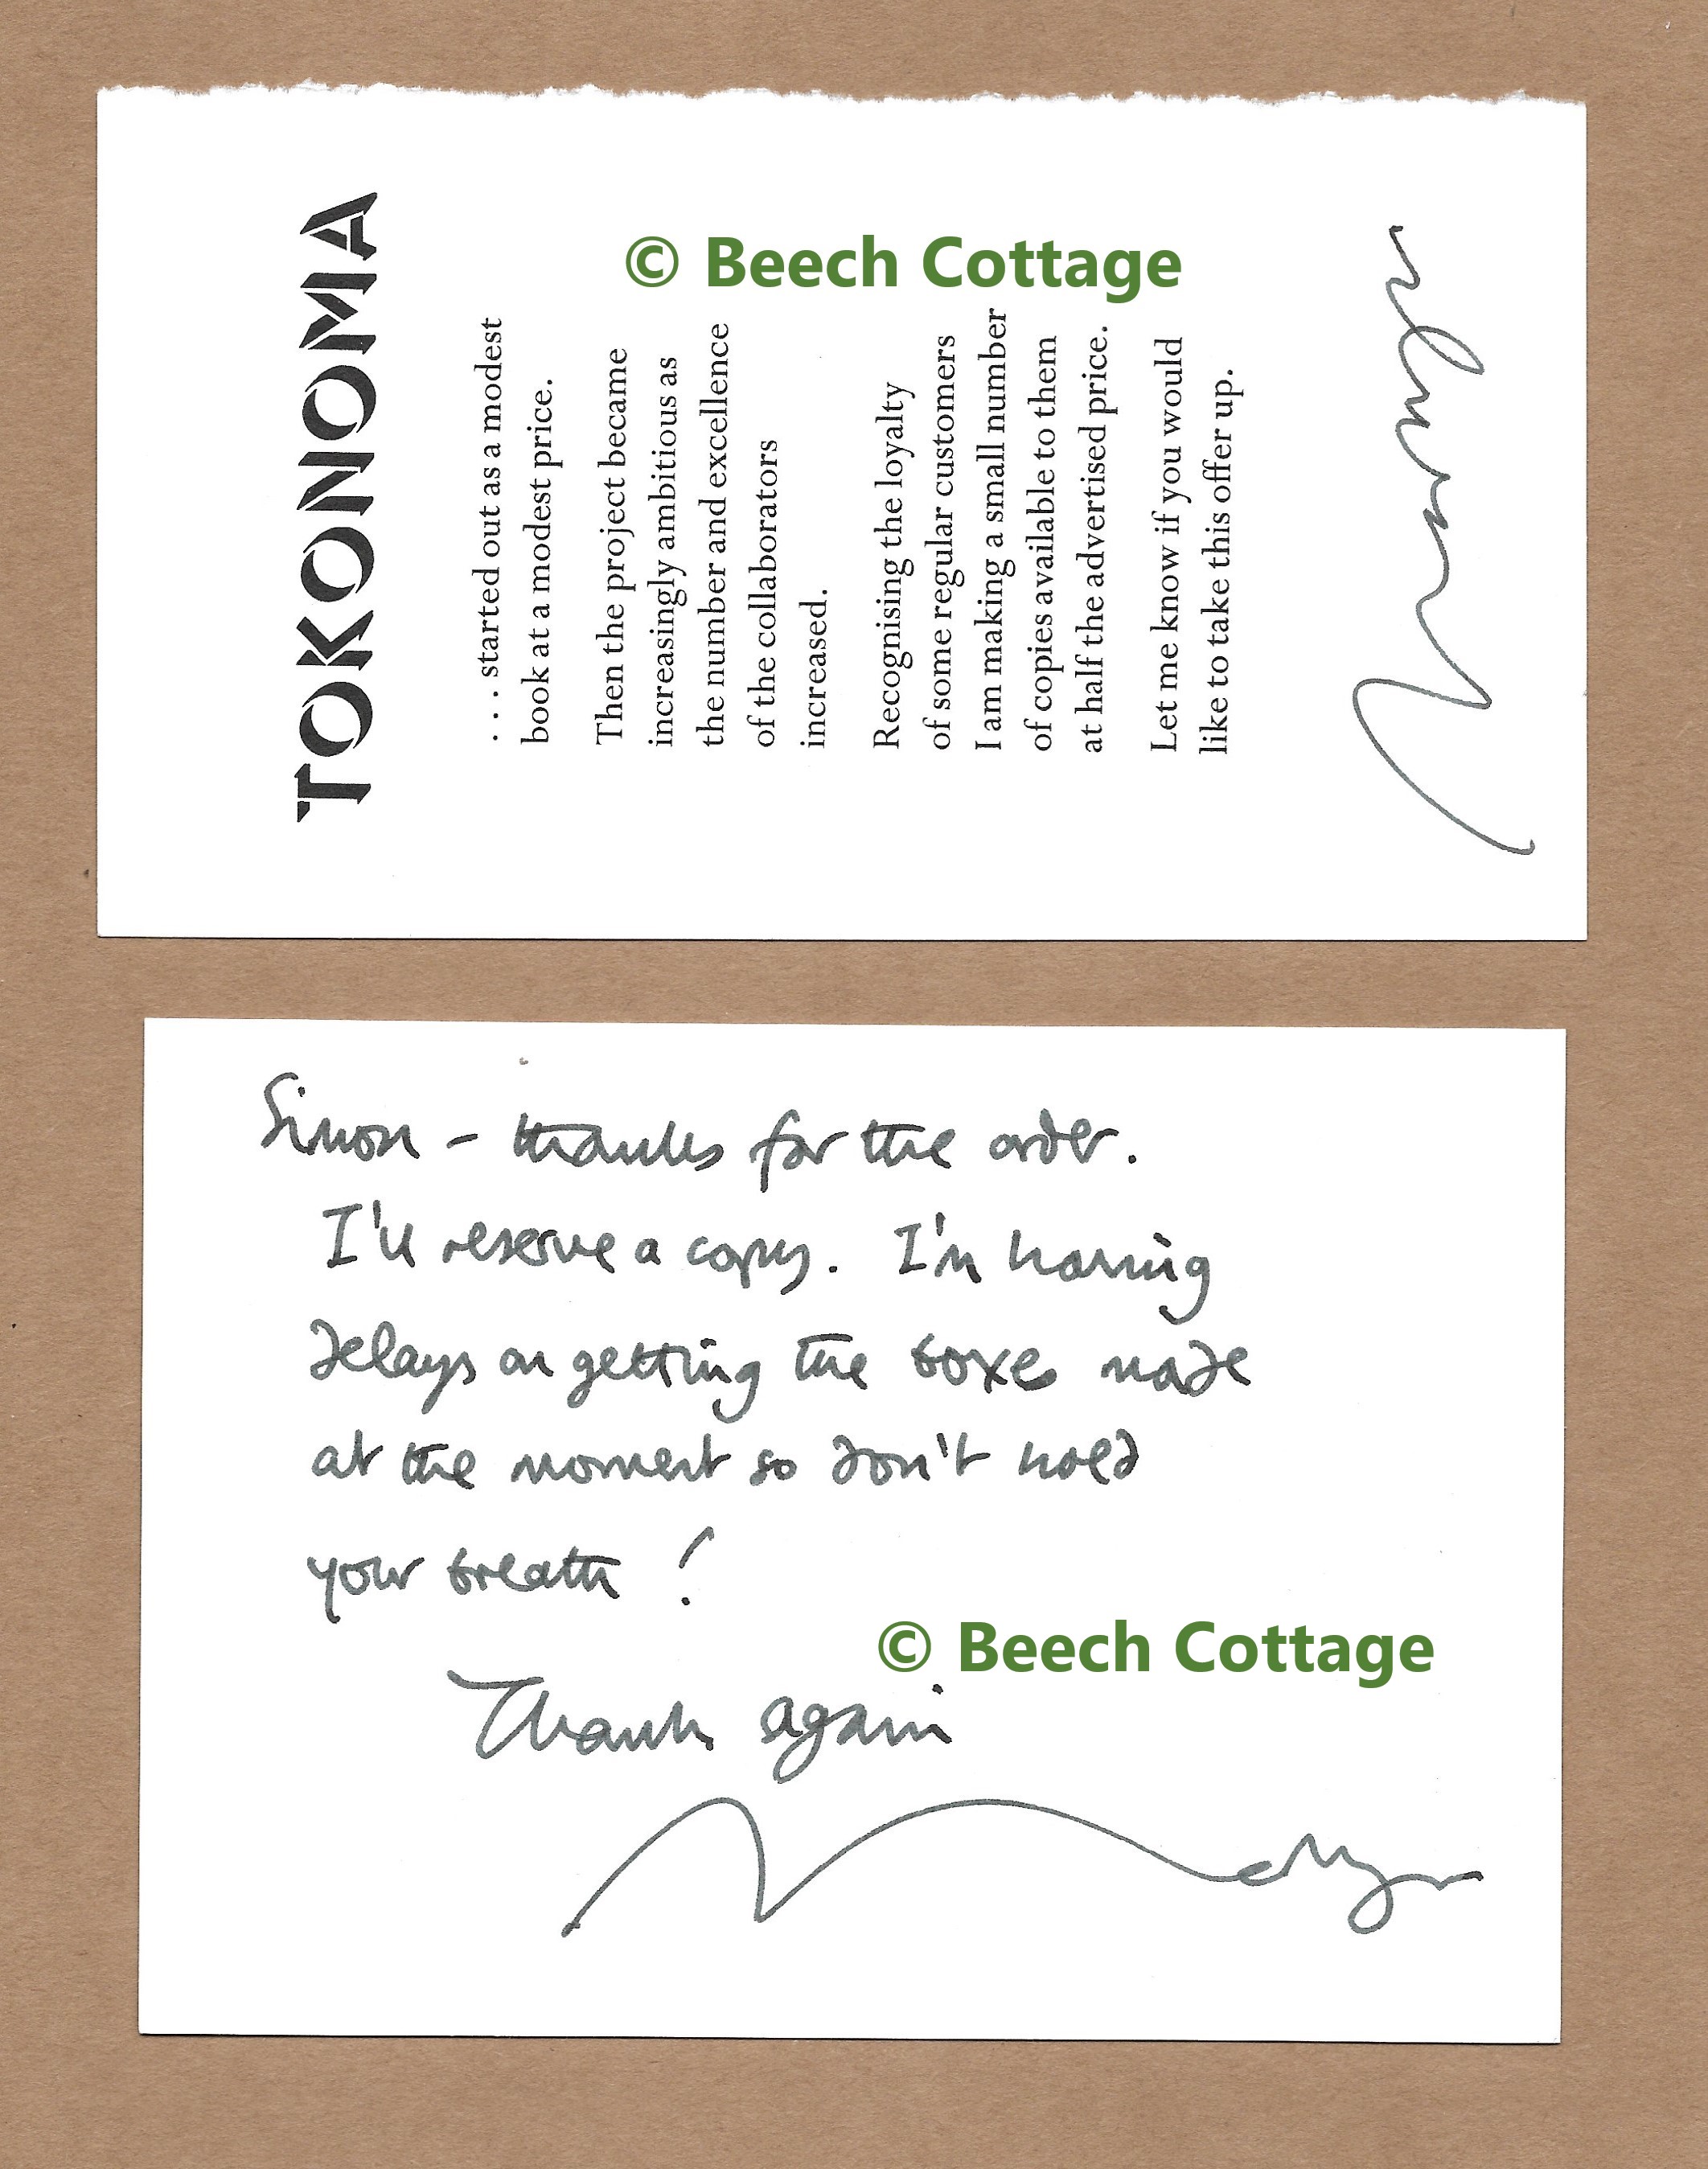 TOKONOMA
© Beech Cottage
. . . started out as a modest
book at a modest price.
Then the project became
increasingly ambitious as
the number and excellence
of the collaborators
increased.
Recognising the loyalty
of some regular customers
I am making a small number
of copies available to them
at half the advertised price.
Let me know if you would
like to take this offer up.
Simon – thanks for the order.
I'll reserve a copy. I'm having
delays on getting the boxes made
at the moment so don't hold
your breath !
© Beech Cottage
Thanks again